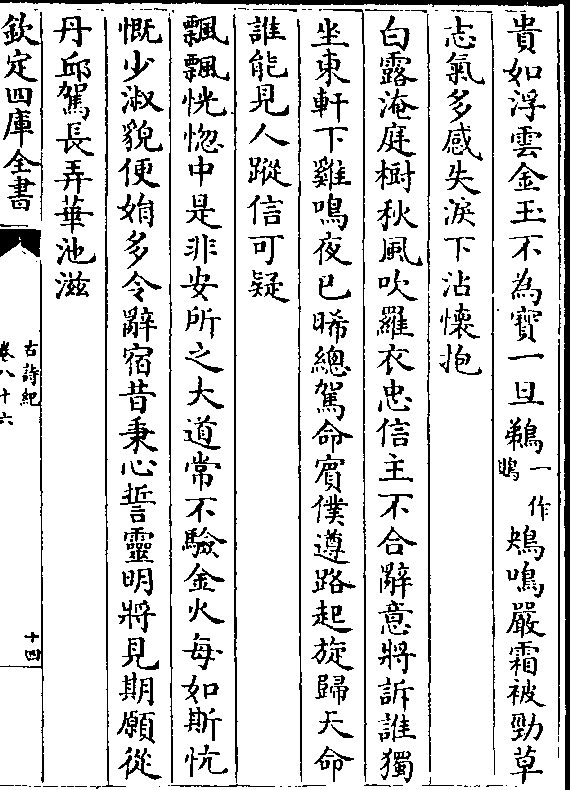 貴如浮雲金玉不為寶一旦鵜一作鵰鴂鳴嚴霜被勁草
志氣多感失淚下沾懷抱
白露淹庭樹秋風吹羅衣忠信主不合辭意將訴誰獨
坐東軒下雞鳴夜已晞總駕命賓僕遵路起旋歸天命
誰能見人蹤信可疑
飄飄恍惚中是非安所之大道常不驗金火每如斯忼
慨少淑貌便娟多令辭宿昔秉心誓靈明將見期願從
丹邱駕長弄華池滋
欽定四庫全書
古詩紀
卷八十六
十四